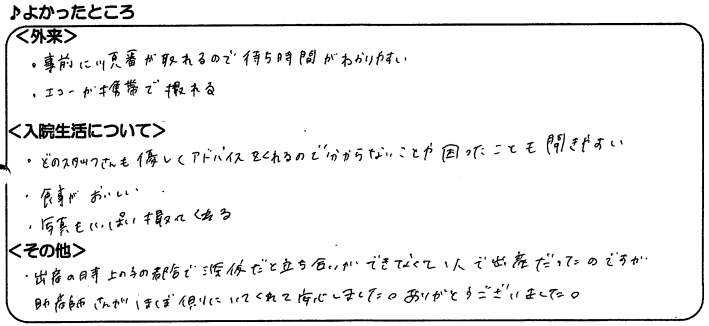 ♪よかったところ
<外来>
・事前に順番が取れるので待ち時間がわかりやすい
・エコーが携帯で撮れる
<入院生活について>
・どのスタッフさんも優しくアドバイスをくれるので分からないことや困ったことも聞きやすい
・食事がおいしい
・写真もいっぱい撮ってくれる
<その他>
・出産の日時上の子の都合で深夜だと立ち合いができなくて1人で出産だったのですが
助産師さんがほぼ側にいてくれて安心しました。ありがとうございました。